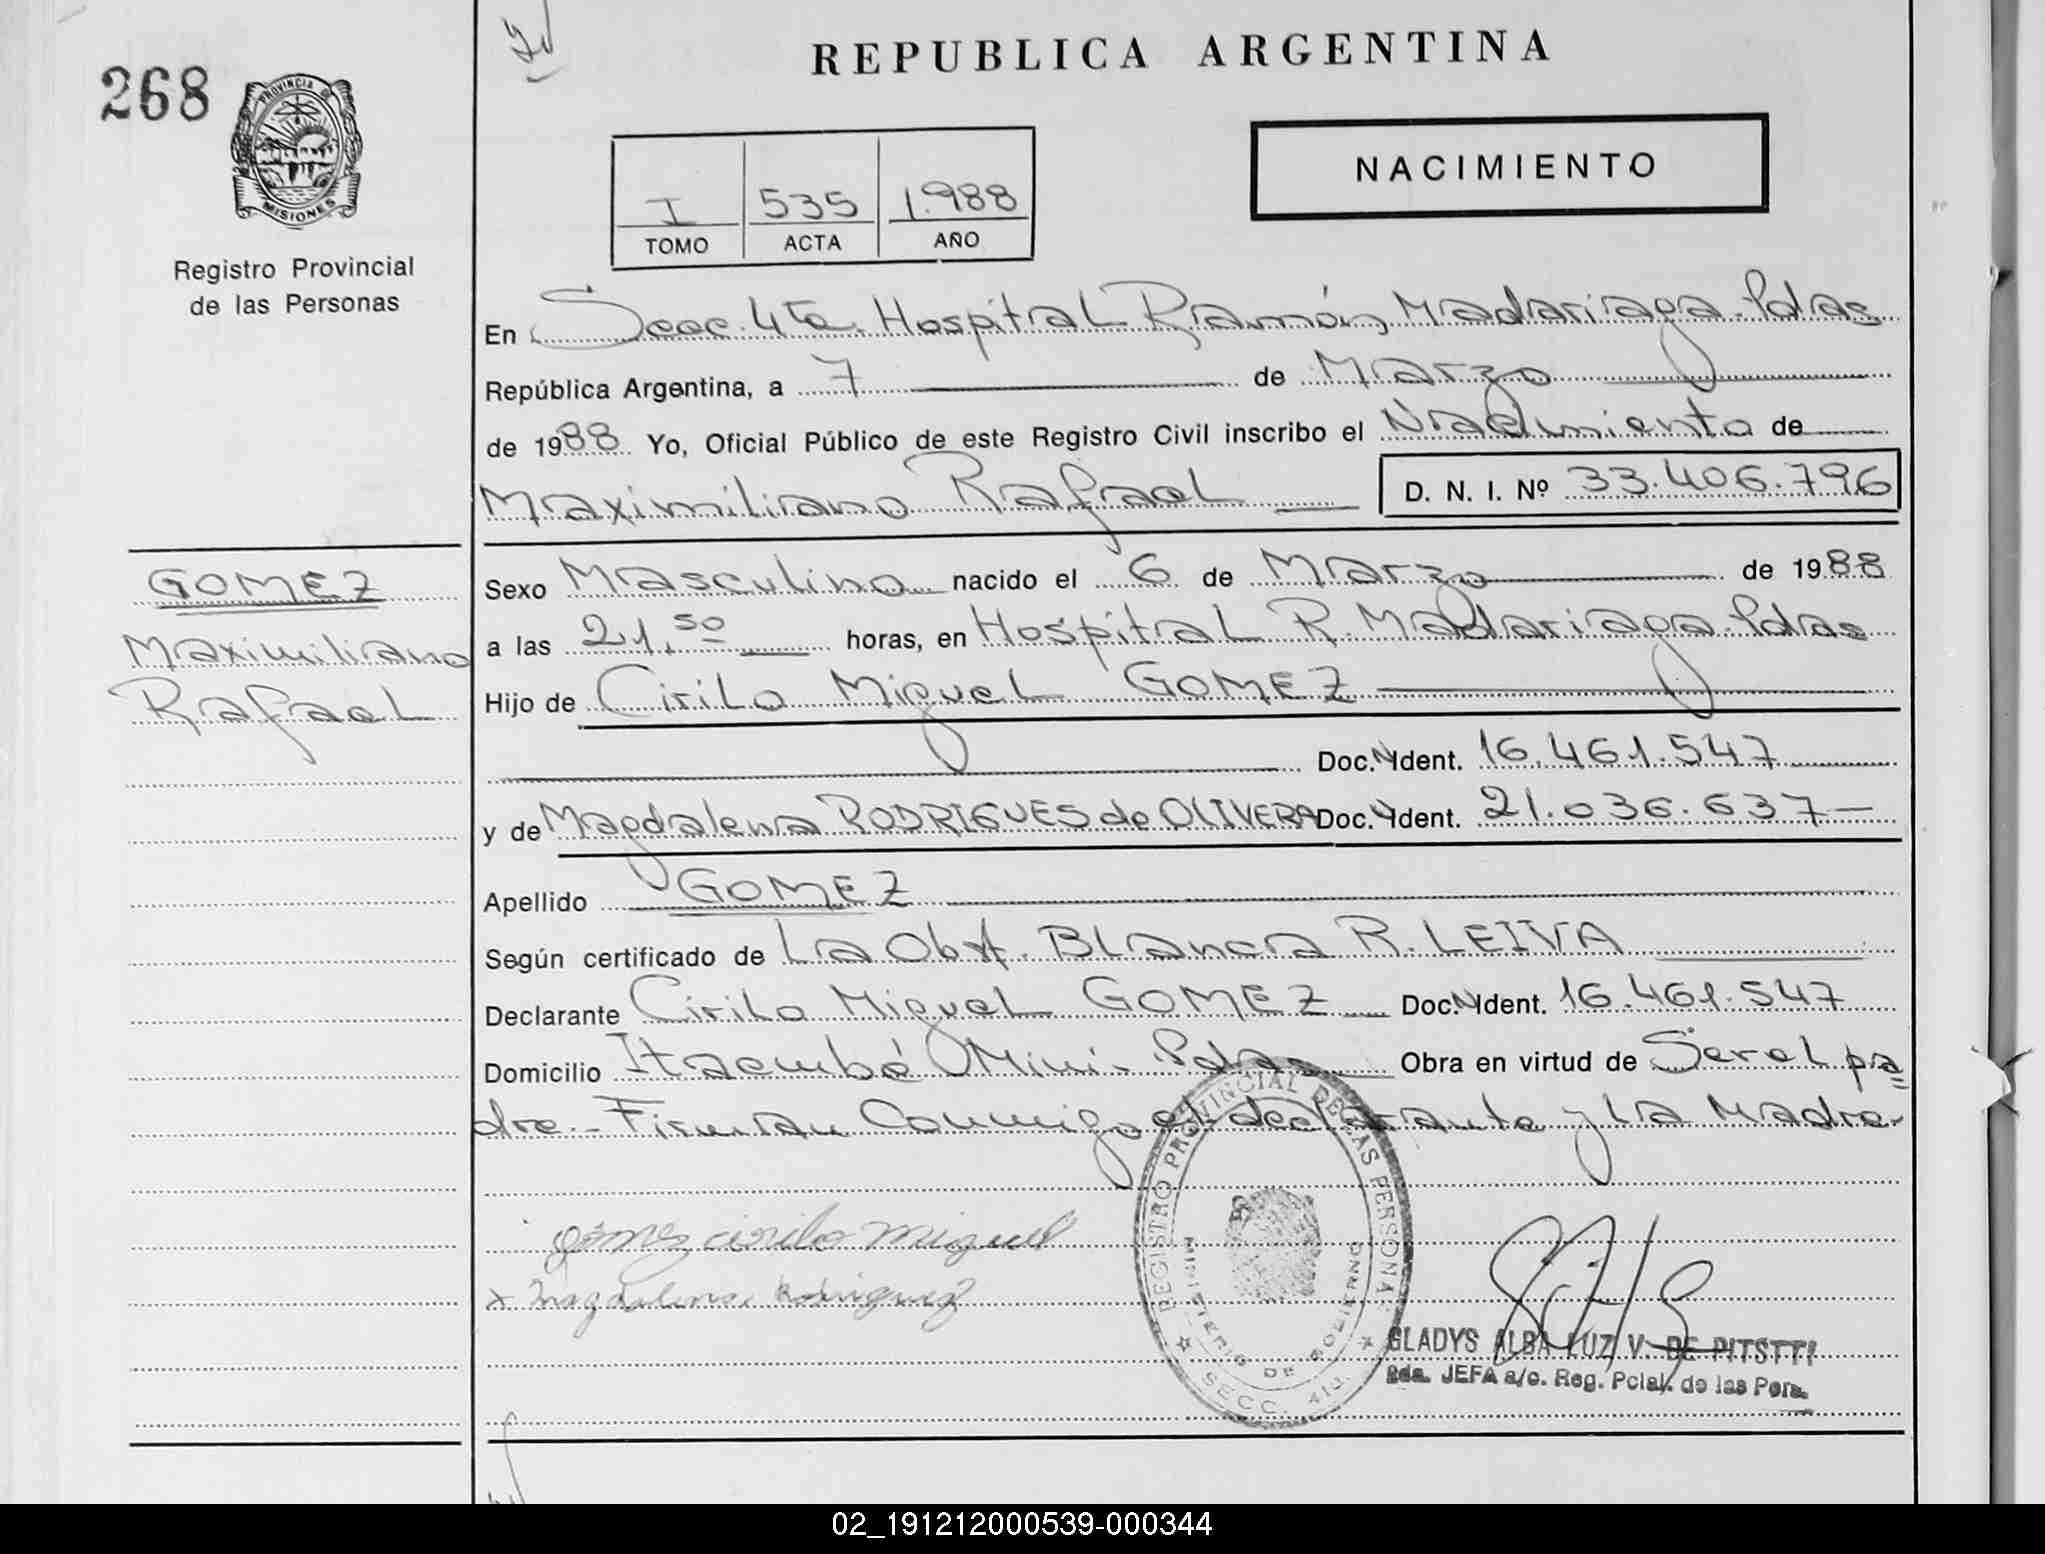 REPUBLICA ARGENTINA
268
PROVINCIA DE
MISIONES
Registro Provincial
de las Personas
NACIMIENTO
I 535 1.988
TOMO ACTA AÑO
En Secc. 4ta. Hospital Ramón Madariaga - Pdas
República Argentina, a 7 de Marzo
de 1988 Yo, Oficial Público de este Registro Civil inscribo el Nacimiento de
Maximiliano Rafael D. N. I. Nº 33.406.796
GOMEZ
Maximiliano
Rafael
Sexo Masculino nacido el 6 de Marzo de 1988
a las 21,50 horas, en Hospital R. Madariaga - Pdas
Hijo de Cirilo Miguel GOMEZ
Doc. Ident. 16.461.547
y de Magdalena RODRIGUES de OLIVERA Doc. Ident. 21.036.637-
Apellido GOMEZ
Según certificado de La Obst. Blanca R. LEIVA
Declarante Cirilo Miguel GOMEZ Doc. Ident. 16.461.547
Domicilio Itaembé Mini - Pdas Obra en virtud de Ser el pa=
dre.- Firman Conmigo el declarante y La Madre-
gómez cirilo miguel
x Magdalena Rodriguez
REGISTRO PROVINCIAL DE LAS PERSONAS
MINISTERIO DE GOBIERNO
SECC. 4ta.
GLADYS ALBA LUZ V. DE PITSTTI
2da. JEFA a/c. Reg. Pcial. de las Pers.
02_191212000539-000344